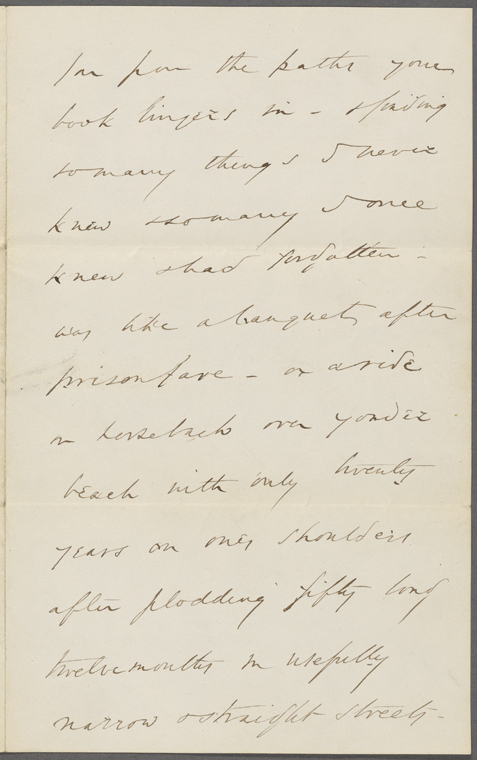 far from the paths your
book lingers in - & finding
so many things I never
knew & so many I once
knew & had forgotten -
was like a banquet after
prison fare - or a ride
on horseback over yonder
beach with only twenty
years on ones shoulders
after plodding fifty long
twelve months in usefully
narrow & straight streets -